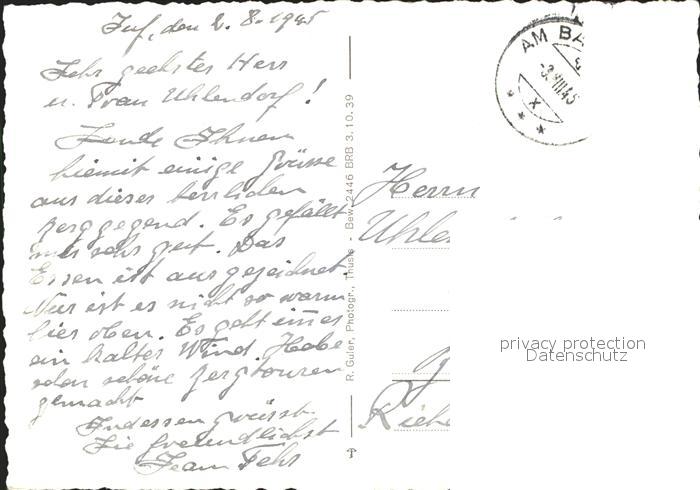 Juf, den 2. 8. 1945
Sehr geehrter Herr
u. Frau Uhlendorf!
Sende Ihnen
hiemit einige Grüsse
aus dieser herrlichen
Berggegend. Es gefällt
mir sehr gut. Das
Essen ist ausgezeichnet.
Nur ist es nicht so warm
hier oben. Es geht immer
ein kalter Wind. Habe
schon schöne Bergtouren
gemacht
Indessen grüsst
Sie freundlichst
Jean Fehr
R. Guler, Photogr., Thusis - Bew. 2446 BRB 3.10.39
AM BA
-3.VIII.45
X
Herrn
Uhle
Riehe
privacy protection
Datenschutz